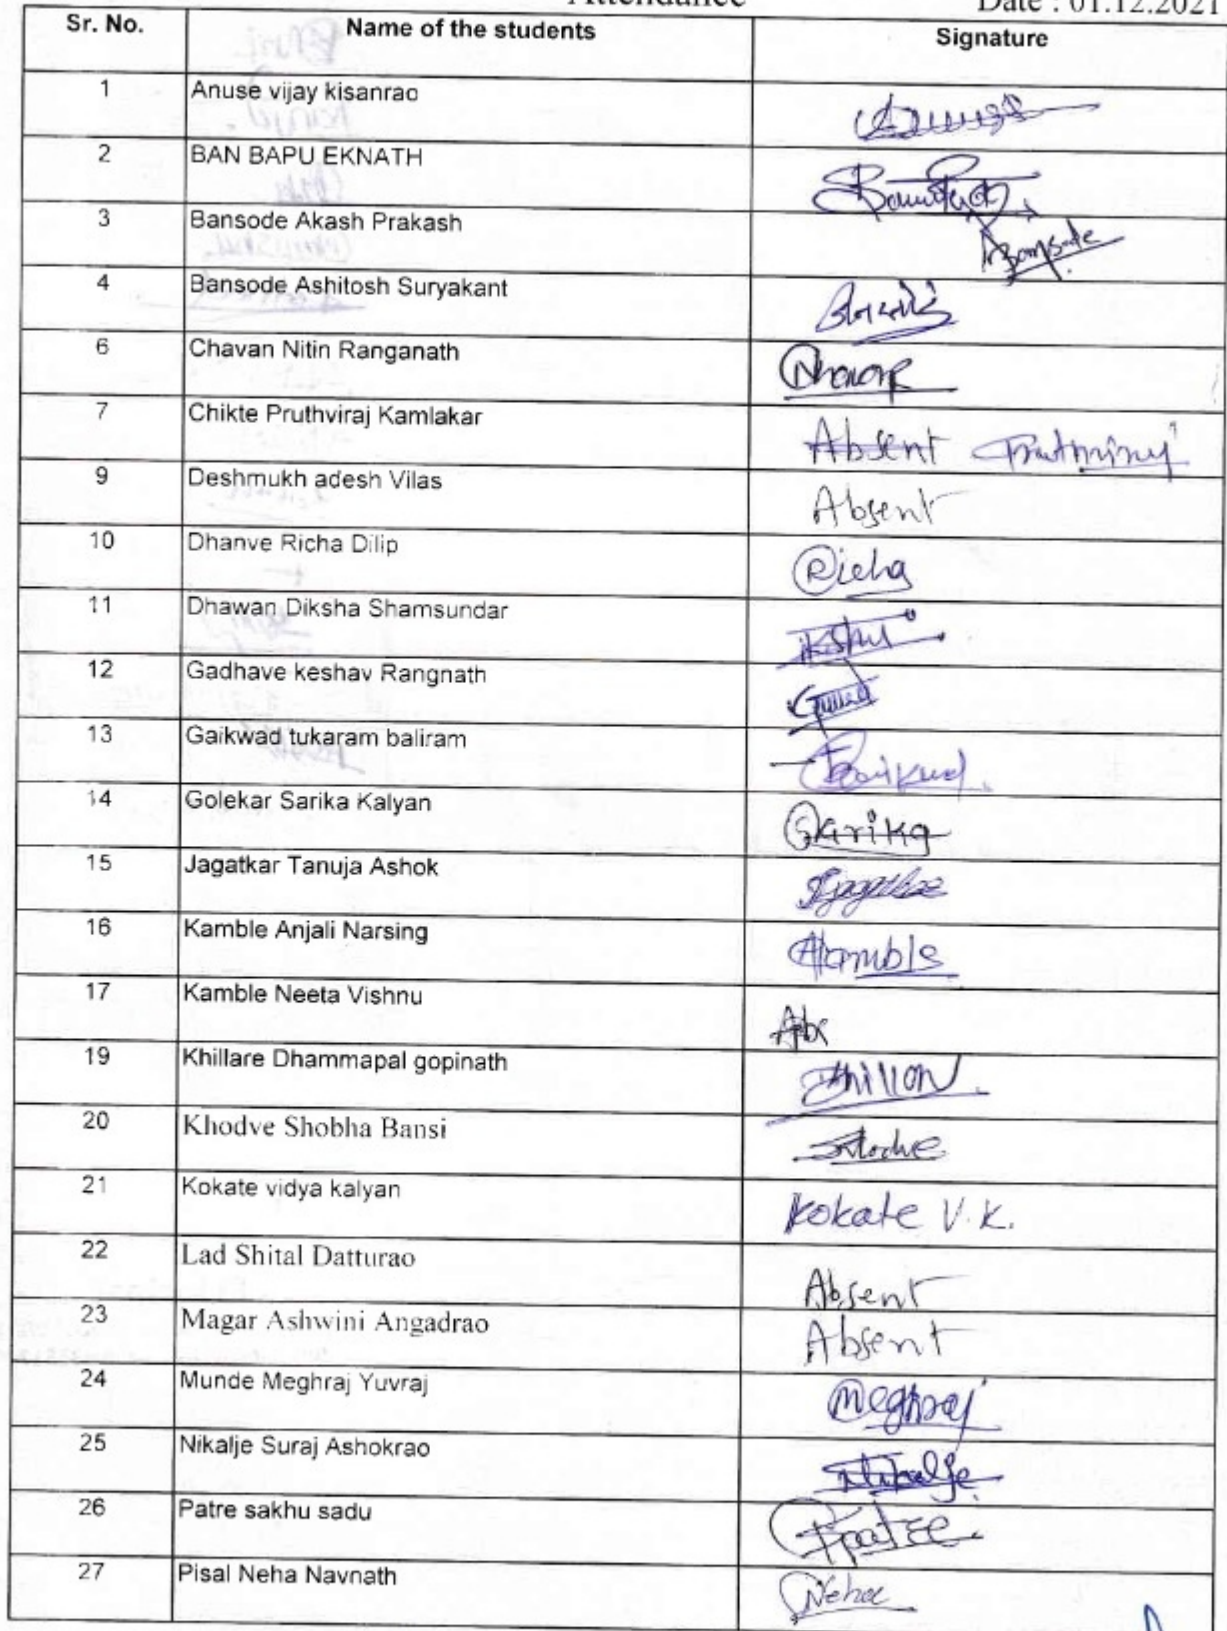 Attendance Date : 01.12.2021
Sr. No. Name of the students Signature
1 Anuse vijay kisanrao
2 BAN BAPU EKNATH
3 Bansode Akash Prakash Bansode
4 Bansode Ashitosh Suryakant
6 Chavan Nitin Ranganath
7 Chikte Pruthviraj Kamlakar Absent
9 Deshmukh adesh Vilas Absent
10 Dhanve Richa Dilip Richa
11 Dhawan Diksha Shamsundar
12 Gadhave keshav Rangnath
13 Gaikwad tukaram baliram
14 Golekar Sarika Kalyan Sarika
15 Jagatkar Tanuja Ashok
16 Kamble Anjali Narsing AKamble
17 Kamble Neeta Vishnu Abs
19 Khillare Dhammapal gopinath
20 Khodve Shobha Bansi
21 Kokate vidya kalyan Kokate V. K.
22 Lad Shital Datturao Absent
23 Magar Ashwini Angadrao Absent
24 Munde Meghraj Yuvraj Meghraj
25 Nikalje Suraj Ashokrao Nikalje
26 Patre sakhu sadu
27 Pisal Neha Navnath Neha